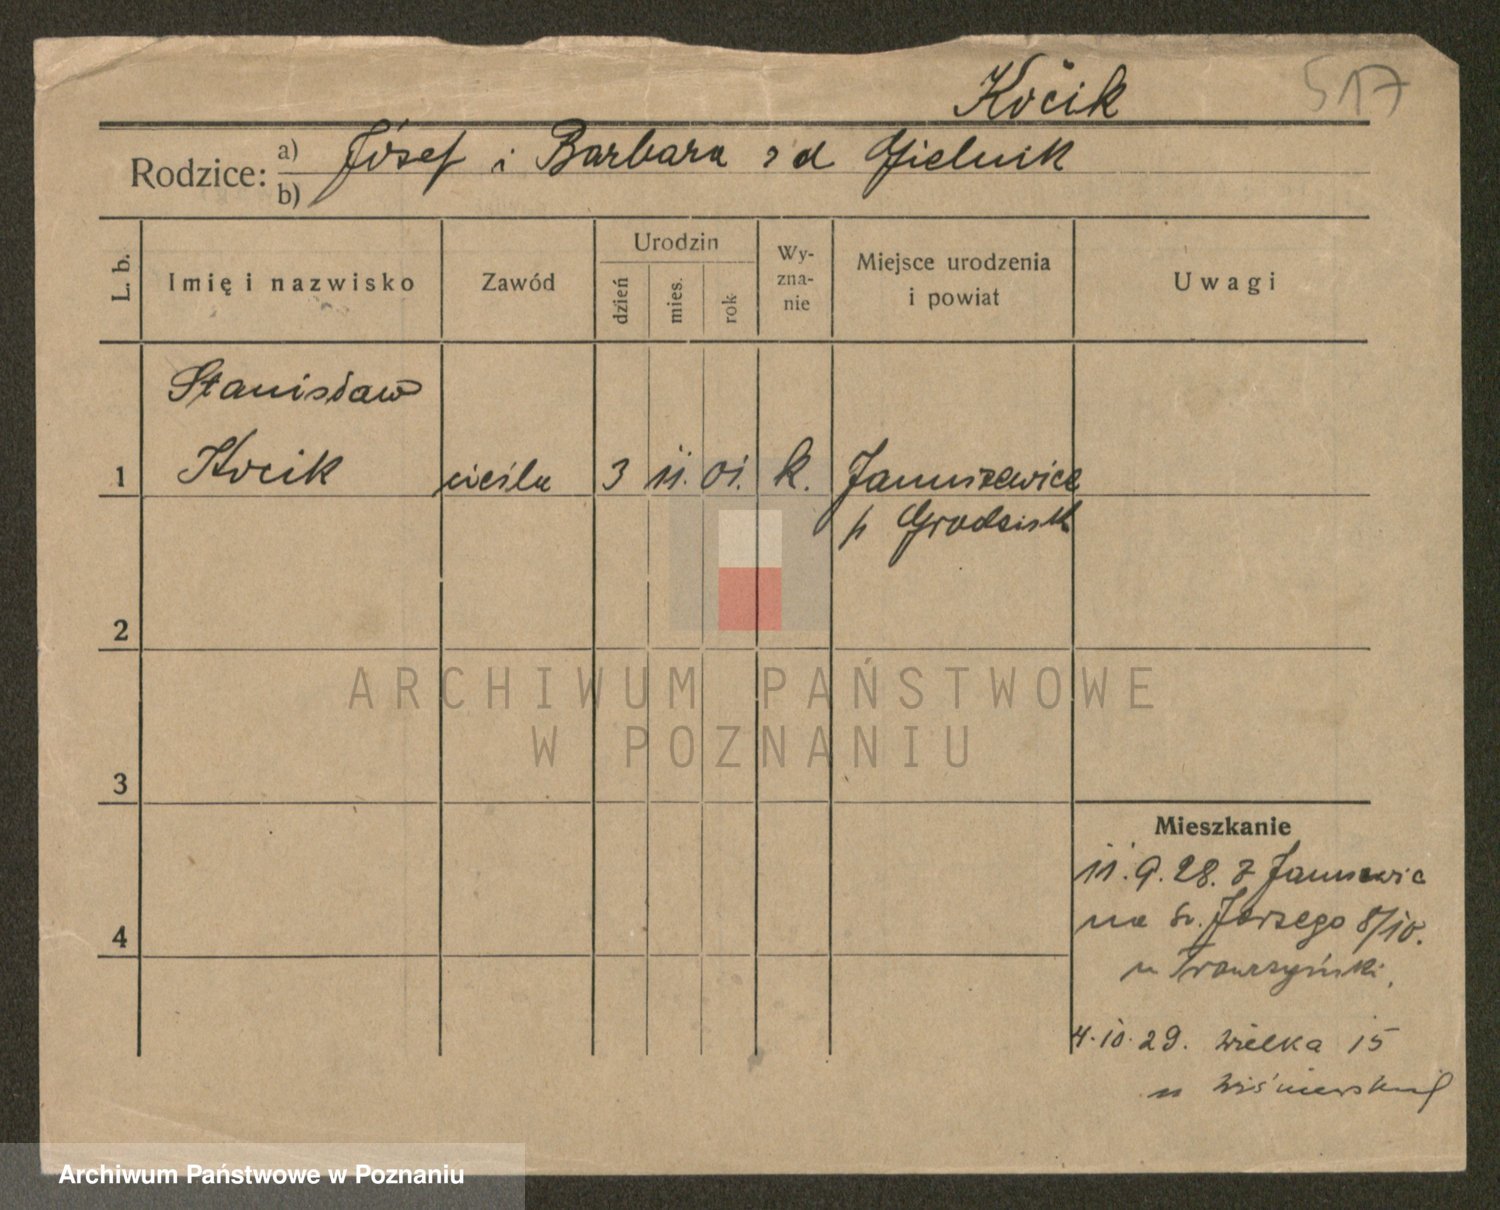 Kocik
517
Rodzice: a) Józef i Barbara z d Gielnik
b)
L. b.
Imię i nazwisko
Zawód
Urodzin
dzień
mies.
rok
Wy-
zna-
nie
Miejsce urodzenia
i powiat
Uwagi
Stanisław
1 Kocik cieśla 3 11. 01. k. Januszewice
p Grodzisk
2
3
4
Mieszkanie
11. 9. 28. z Januszewic
na Sw. Jerzego 8/10.
u
4.10.29. Wielka 15
u Wiśniewskiej
ARCHIWUM PAŃSTWOWE
W POZNANIU
Archiwum Państwowe w Poznaniu